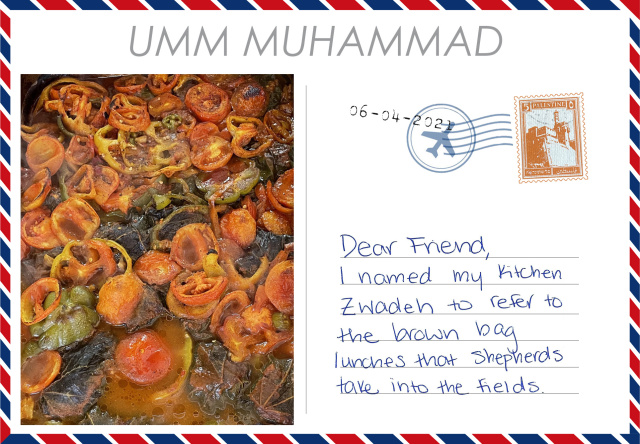 UMM MUHAMMAD
06-04-2021
PALESTINE
Dear Friend,
I named my Kitchen
Zwadeh to refer to
the brown bag
lunches that Shepherds
take into the fields.